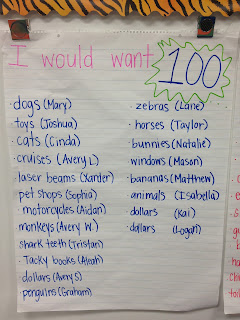 I would want 100
· dogs (Mary)
toys (Joshua)
· cats (Cinda)
· cruises (Avery L)
· laser beams (Xander)
· pet shops (Sophia)
· motorcycles (Aidan)
monkeys (Avery W.)
shark teeth (Tristan)
· Tacky books (Aleah)
dollars (Avery S)
penguins (Graham)
· zebras (Lane)
· horses (Taylor)
· bunnies (Natalie)
windows (Mason)
· bananas (Matthew)
· animals (Isabella)
· dollars (Kai)
· dollars (Logan)